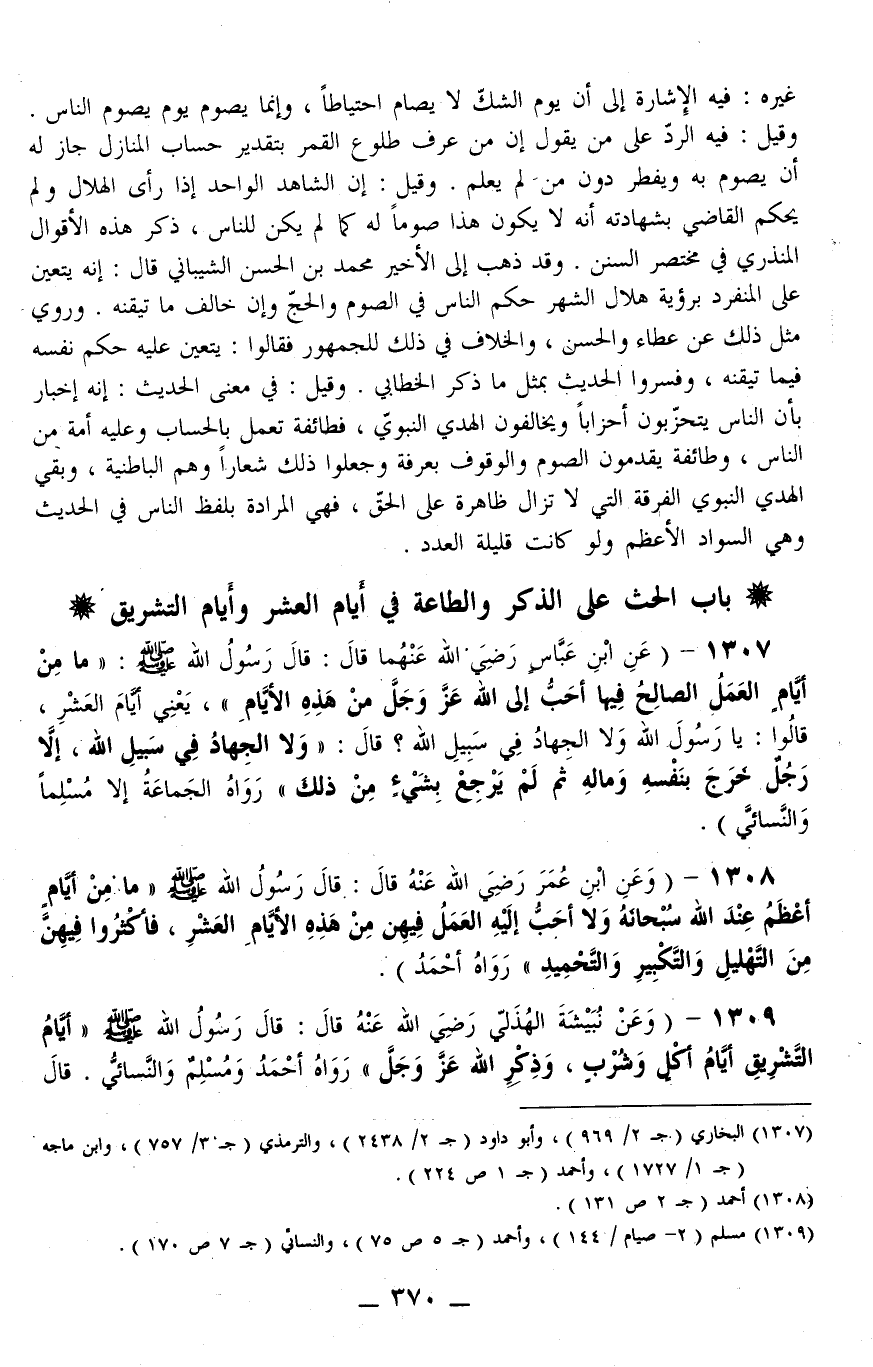 غيره : فيه الإشارة إلى أن يوم الشكّ لا يصام احتياطاً ، وإنما يصوم يوم يصوم الناس .
وقيل : فيه الردّ على من يقول إن من عرف طلوع القمر بتقدير حساب المنازل جاز له
أن يصوم به ويفطر دون من لم يعلم . وقيل : إن الشاهد الواحد إذا رأى الهلال ولم
يحكم القاضي بشهادته أنه لا يكون هذا صوماً له كما لم يكن للناس ، ذكر هذه الأقوال
المنذري في مختصر السنن . وقد ذهب إلى الأخير محمد بن الحسن الشيباني قال : إنه يتعين
على المنفرد برؤية هلال الشهر حكم الناس في الصوم والحجّ وإن خالف ما تيقنه . وروي
مثل ذلك عن عطاء والحسن ، والخلاف في ذلك للجمهور فقالوا : يتعين عليه حكم نفسه
فيما تيقنه ، وفسروا الحديث بمثل ما ذكر الخطابي . وقيل : في معنى الحديث : إنه إخبار
بأن الناس يتحزّبون أحزاباً ويخالفون الهدي النبويّ ، فطائفة تعمل بالحساب وعليه أمة من
الناس ، وطائفة يقدمون الصوم والوقوف بعرفة وجعلوا ذلك شعاراً وهم الباطنية ، وبقي
الهدي النبوي الفرقة التي لا تزال ظاهرة على الحقّ ، فهي المرادة بلفظ الناس في الحديث
وهي السواد الأعظم ولو كانت قليلة العدد .
باب الحث على الذكر والطاعة في أيام العشر وأيام التشريق
١٣٠٧ – ( عَنِ ابْنِ عَبَّاسٍ رَضِيَ الله عَنْهُما قالَ : قالَ رَسُولُ الله ﷺ : « ما مِنْ
أيَّامٍ العَمَلُ الصالِحُ فِيها أحَبُّ إلى الله عَزَّ وَجَلَّ منْ هَذِهِ الأيَّامِ » ، يَعْنِي أيَّامَ العَشْرِ ،
قالُوا : يا رَسُولَ الله وَلا الجِهادُ فِي سَبِيلِ الله ؟ قالَ : « وَلا الجِهادُ فِي سَبِيلِ الله ، إلَّا
رَجُلٌ خَرَجَ بنَفْسهِ وَمالهِ ثم لَمْ يَرْجِعْ بِشَيْءٍ مِنْ ذلكَ » رَوَاهُ الجَماعَةُ إلا مُسْلِماً
وَالنَّسائيَّ ) .
١٣٠٨ – ( وَعَنِ ابْنِ عُمَرَ رَضِيَ الله عَنْهُ قالَ : قالَ رَسُولُ الله ﷺ « ما مِنْ أيَّامٍ
أعْظَمُ عِنْدَ الله سُبْحانَهُ وَلا أحَبُّ إلَيْهِ العَمَلُ فِيهِن مِنْ هَذِهِ الأيَّامِ العَشْرِ ، فأكْثرُوا فِيهِنَّ
مِنَ التَّهْلِيلِ وَالتَّكْبِيرِ وَالتَّحْمِيدِ » رَوَاهُ أحْمَدُ ) .
١٣٠٩ – ( وَعَنْ نُبَيْشَةَ الهُذَليّ رَضِيَ الله عَنْهُ قالَ : قالَ رَسُولُ الله ﷺ « أيَّامُ
التَّشْرِيقِ أيَّامُ أكْلٍ وَشُرْبٍ ، وَذِكْرِ الله عَزَّ وَجَلَّ » رَوَاهُ أحْمَدُ وَمُسْلِمٌ وَالنَّسائيُّ . قالَ
(١٣٠٧) البخاري ( جـ ٢/ ٩٦٩ ) ، وأبو داود ( جـ ٢/ ٢٤٣٨ ) ، والترمذي ( جـ ٣/ ٧٥٧ ) ، وابن ماجه
( جـ ١/ ١٧٢٧ ) ، وأحمد ( جـ ١ ص ٢٢٤ ) .
(١٣٠٨) أحمد ( جـ ٢ ص ١٣١ ) .
(١٣٠٩) مسلم ( ٢- صيام / ١٤٤ ) ، وأحمد ( جـ ٥ ص ٧٥ ) ، والنسائي ( جـ ٧ ص ١٧٠ ) .
– ٣٧٠ –